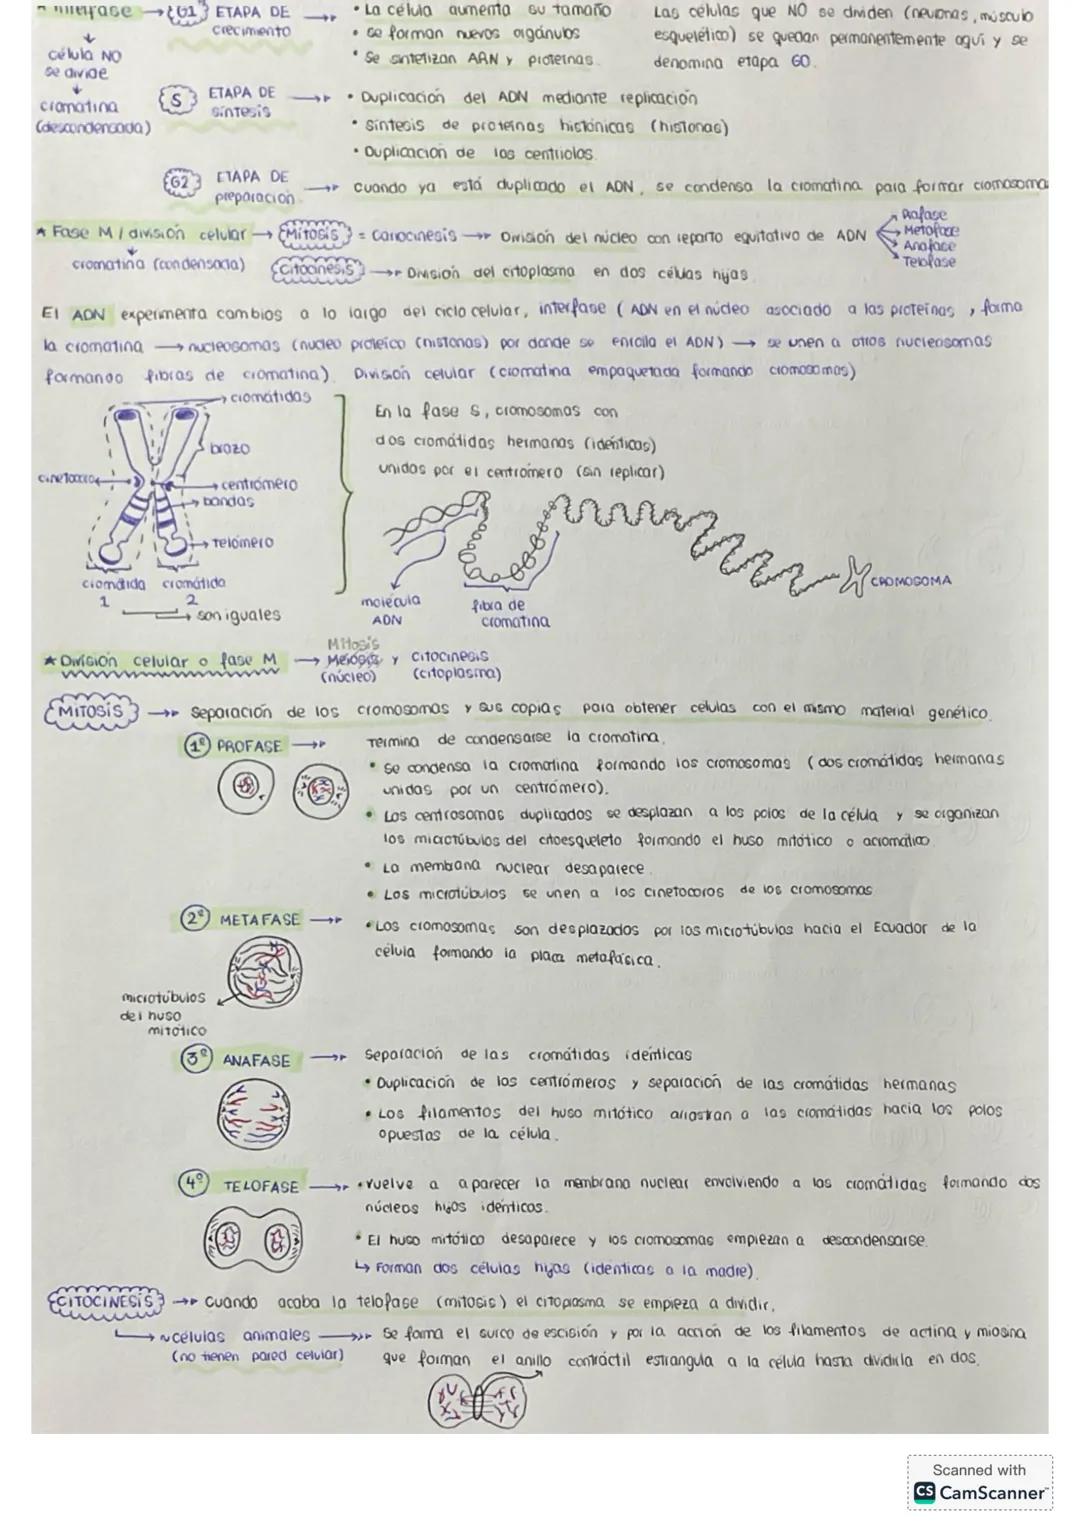 * Interfase → G1 ETAPA DE crecimiento →
• La célula aumenta su tamaño
• se forman nuevos orgánulos
• Se sintetizan ARN y proteínas.
Las células que NO se dividen (neuronas, músculo
esquelético) se quedan permanentemente aquí y se
denomina etapa G0.
↓
célula NO
se divide
↓
cromatina
(descondensada)
S ETAPA DE síntesis →
• Duplicación del ADN mediante replicación
• síntesis de proteínas histónicas (histonas)
• Duplicación de los centriolos.
G2 ETAPA DE preparación → cuando ya está duplicado el ADN, se condensa la cromatina para formar cromosoma
* Fase M / división celular → Mitosis = Cariocinesis → División del núcleo con reparto equitativo de ADN
Profase
Metafase
Anafase
Telofase
↓
cromatina (condensada)
Citocinesis → División del citoplasma en dos células hijas.
El ADN experimenta cambios a lo largo del ciclo celular, interfase (ADN en el núcleo asociado a las proteínas, forma
la cromatina → nucleosomas (nucleo proteico (histonas) por donde se enrolla el ADN) → se unen a otros nucleosomas
formando fibras de cromatina). División celular (cromatina empaquetada formando cromosomas)
cromátidas
brazo
cinetocoro
centrómero
bandas
Telómero
cromátida 1
cromátida 2
son iguales
En la fase S, cromosomas con
dos cromátidas hermanas (idénticas)
unidas por el centrómero (sin replicar)
molécula
ADN
fibra de
cromatina
CROMOSOMA
* División celular o fase M → Mitosis
Meiosis y citocinesis
(núcleo) (citoplasma)
MITOSIS → separación de los cromosomas y sus copias para obtener celulas con el mismo material genético.
1º PROFASE → Termina de condensarse la cromatina.
• Se condensa la cromatina formando los cromosomas (dos cromátidas hermanas
unidas por un centrómero).
• Los centrosomas duplicados se desplazan a los polos de la célula y se organizan
los microtúbulos del citoesqueleto formando el huso mitótico o acromático.
• La membrana nuclear desaparece.
• Los microtúbulos se unen a los cinetocoros de los cromosomas
2º METAFASE → • Los cromosomas son desplazados por los microtúbulos hacia el Ecuador de la
célula formando la placa metafásica.
microtúbulos
del huso
mitótico
3º ANAFASE → Separación de las cromátidas idénticas
• Duplicación de los centrómeros y separación de las cromátidas hermanas
• Los filamentos del huso mitótico arrastran a las cromátidas hacia los polos
opuestos de la célula.
4º TELOFASE → • vuelve a aparecer la membrana nuclear envolviendo a las cromátidas formando dos
núcleos hijos idénticos.
• El huso mitótico desaparece y los cromosomas empiezan a descondensarse.
↳ Forman dos células hijas (idénticas a la madre).
CITOCINESIS → cuando acaba la telofase (mitosis) el citoplasma se empieza a dividir.
→ células animales → Se forma el surco de escisión y por la acción de los filamentos de actina y miosina
(no tienen pared celular) que forman el anillo contráctil estrangula a la célula hasta dividirla en dos.
Scanned with
CS CamScanner